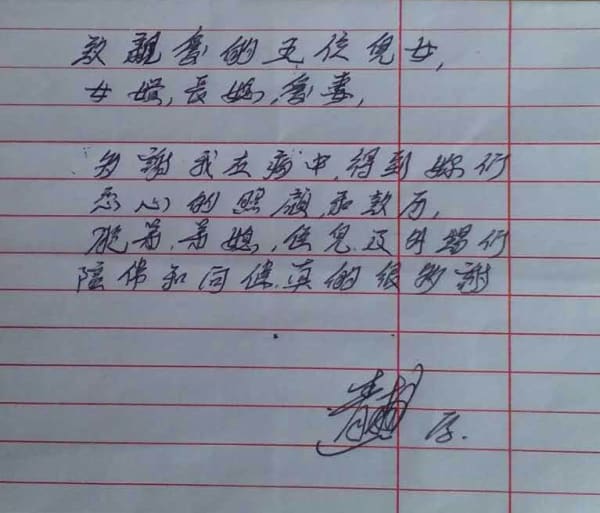 致親愛的五位兒女,
女婿,長媳,愛妻,
多謝我在病中,得到妳們
悉心的照顧,和鼓厉,
胞弟,弟媳,侄兒,及外甥們
陪伴和问候.真的很多謝